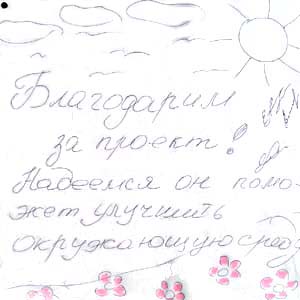 Благодарим
за проект!
Надеемся он помо-
жет улучшить
окружающую среду